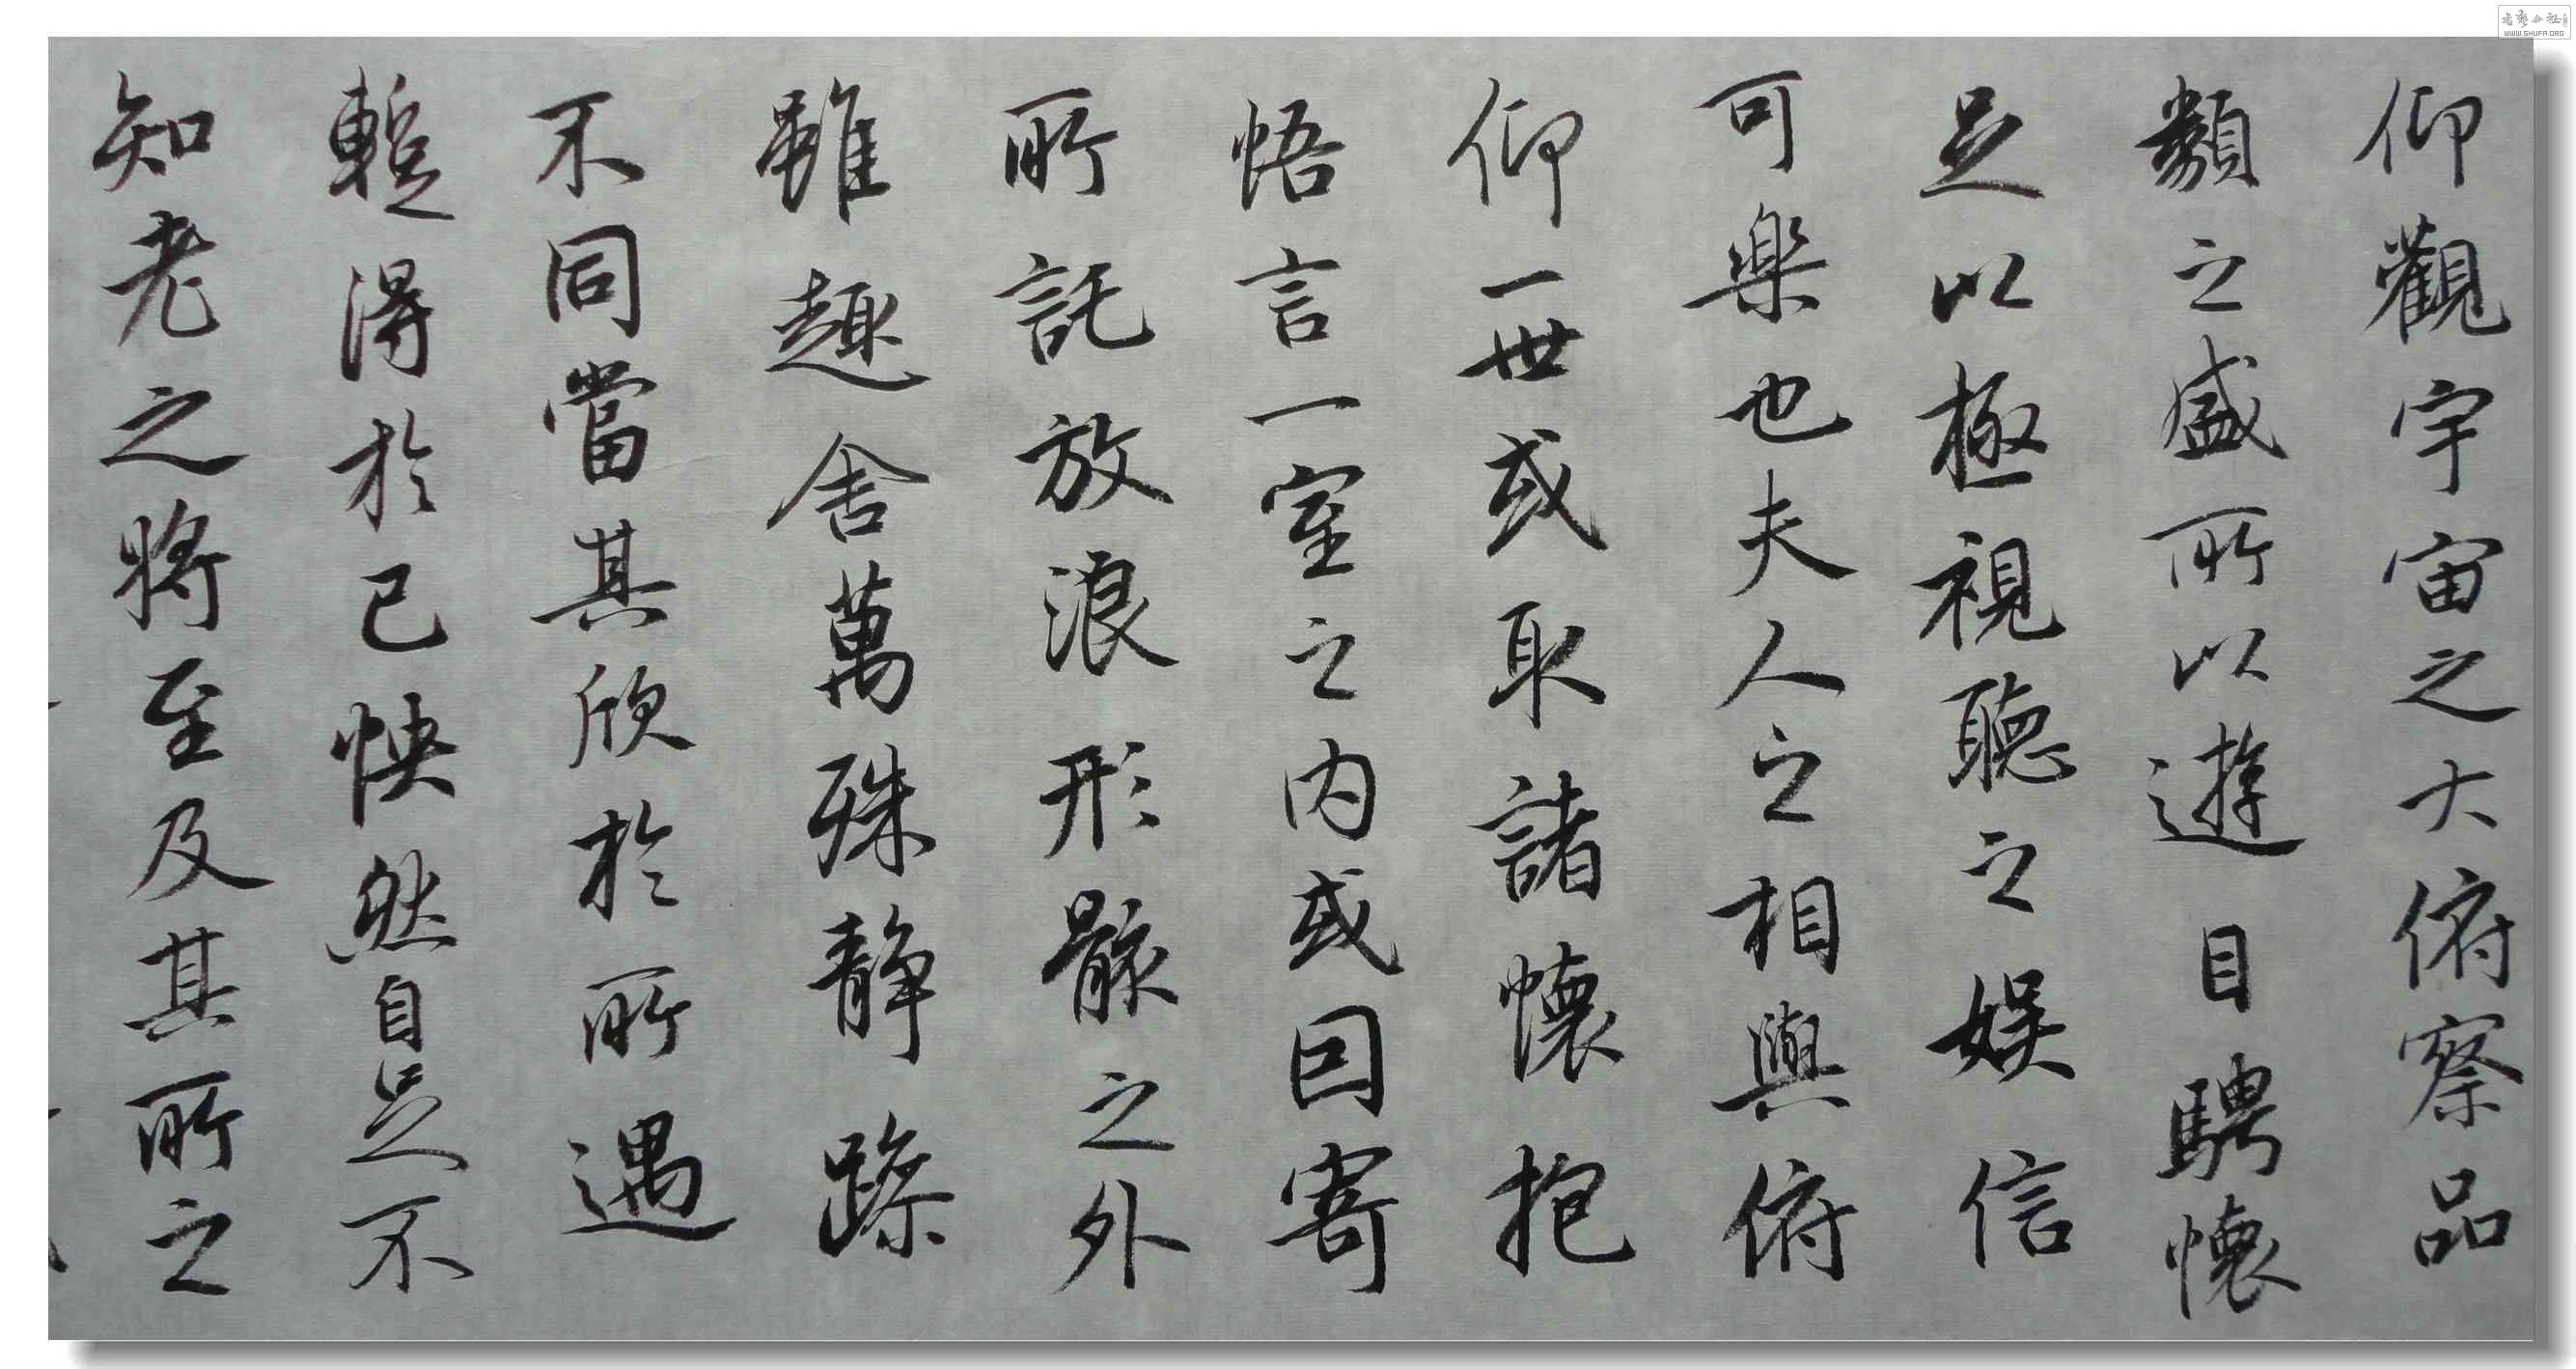 仰觀宇宙之大俯察品
類之盛所以遊目騁懷
足以極視聽之娛信
可樂也夫人之相與俯
仰一世或取諸懷抱
悟言一室之内或因寄
所託放浪形骸之外
雖趣舍萬殊静躁
不同當其欣於所遇
暫得於己怏然自足不
知老之將至及其所之
WWW.SHUFA.ORG